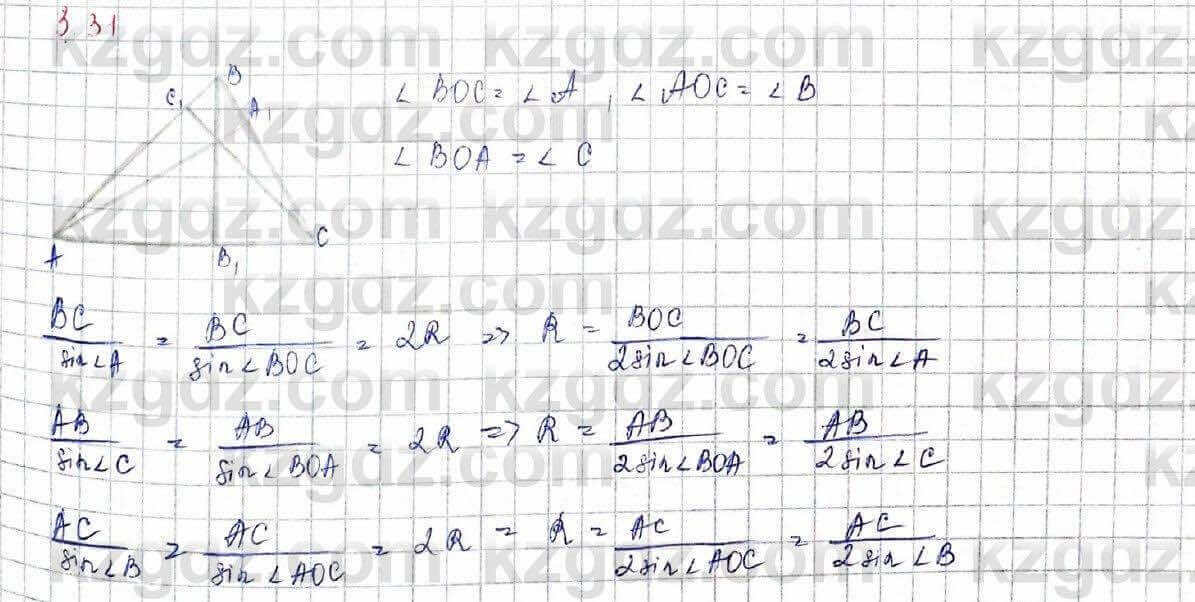 3.31
kzgdz.com
B
C₁
A₁
A
B₁
C
∠ BOC = ∠ A , ∠ AOC = ∠ B
∠ BOA = ∠ C
BC/sin∠A = BC/sin∠BOC = 2R => R = BOC/2sin∠BOC = BC/2sin∠A
AB/sin∠C = AB/sin∠BOA = 2R => R = AB/2sin∠BOA = AB/2sin∠C
AC/sin∠B = AC/sin∠AOC = 2R = R = AC/2sin∠AOC = AC/2sin∠B